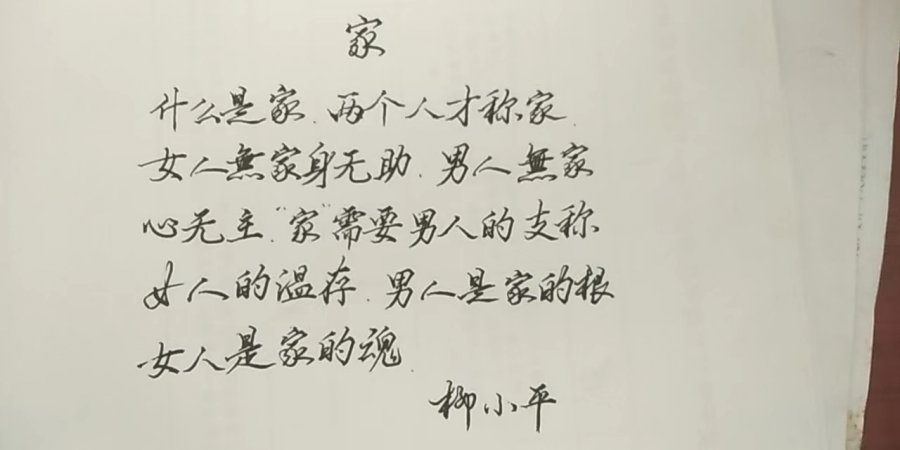 家
什么是家.两个人才称家.
女人無家身无助.男人無家
心无主."家"需要男人的支称
女人的温存.男人是家的根
女人是家的魂.
柳小平